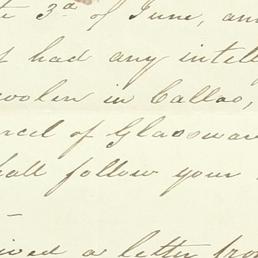 3d of June, an
had any intell
in Callao,
rcel of Glasswar
hall follow your
—
ived a letter from